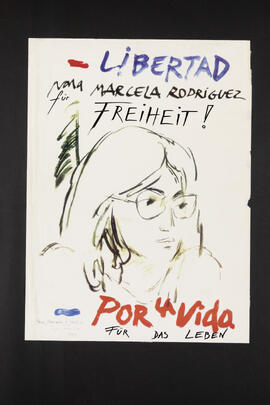 – LiBERTAD
para
für MARCELA RODRIGUEZ
FREiHEiT!
POR LA Vida
FÜR DAS LEBEN